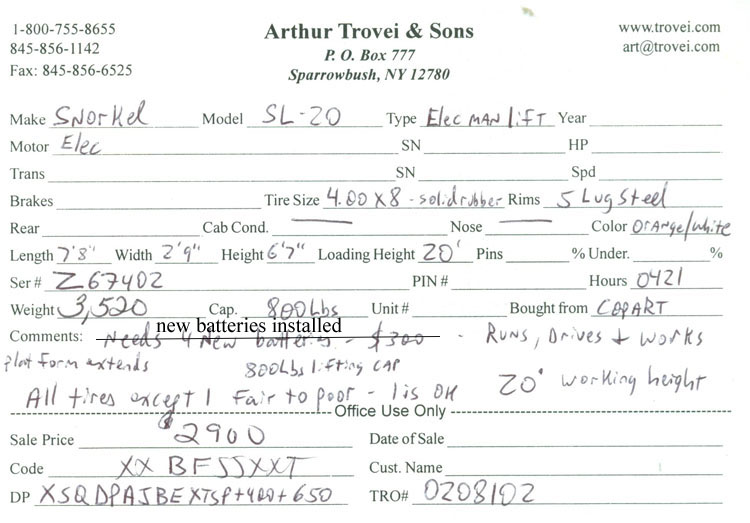 1-800-755-8655 Arthur Trovei & Sons www.trovei.com
845-856-1142 P. O. Box 777 art@trovei.com
Fax: 845-856-6525 Sparrowbush, NY 12780
Make Snorkel Model SL-20 Type Elec MAN lifT Year
Motor Elec SN HP
Trans SN Spd
Brakes Tire Size 4.00 x 8 - solid rubber Rims 5 Lug Steel
Rear Cab Cond. Nose Color Orange/white
Length 7'8" Width 2'9" Height 6'7" Loading Height 20' Pins % Under. %
Ser # Z67402 PIN # Hours 0421
Weight 3,520 Cap. 800Lbs Unit # Bought from COPART
new batteries installed
Comments: Needs 4 New batteries - $300 - Runs, Drives + works
platform extends 800Lbs lifting CAP 20' working height
All tires except 1 Fair to poor - 1 is OK
Office Use Only
Sale Price $2900 Date of Sale
Code XXBFSSXXT Cust. Name
DP XSQDPAJBEXTSP+400+650 TRO# 0208102